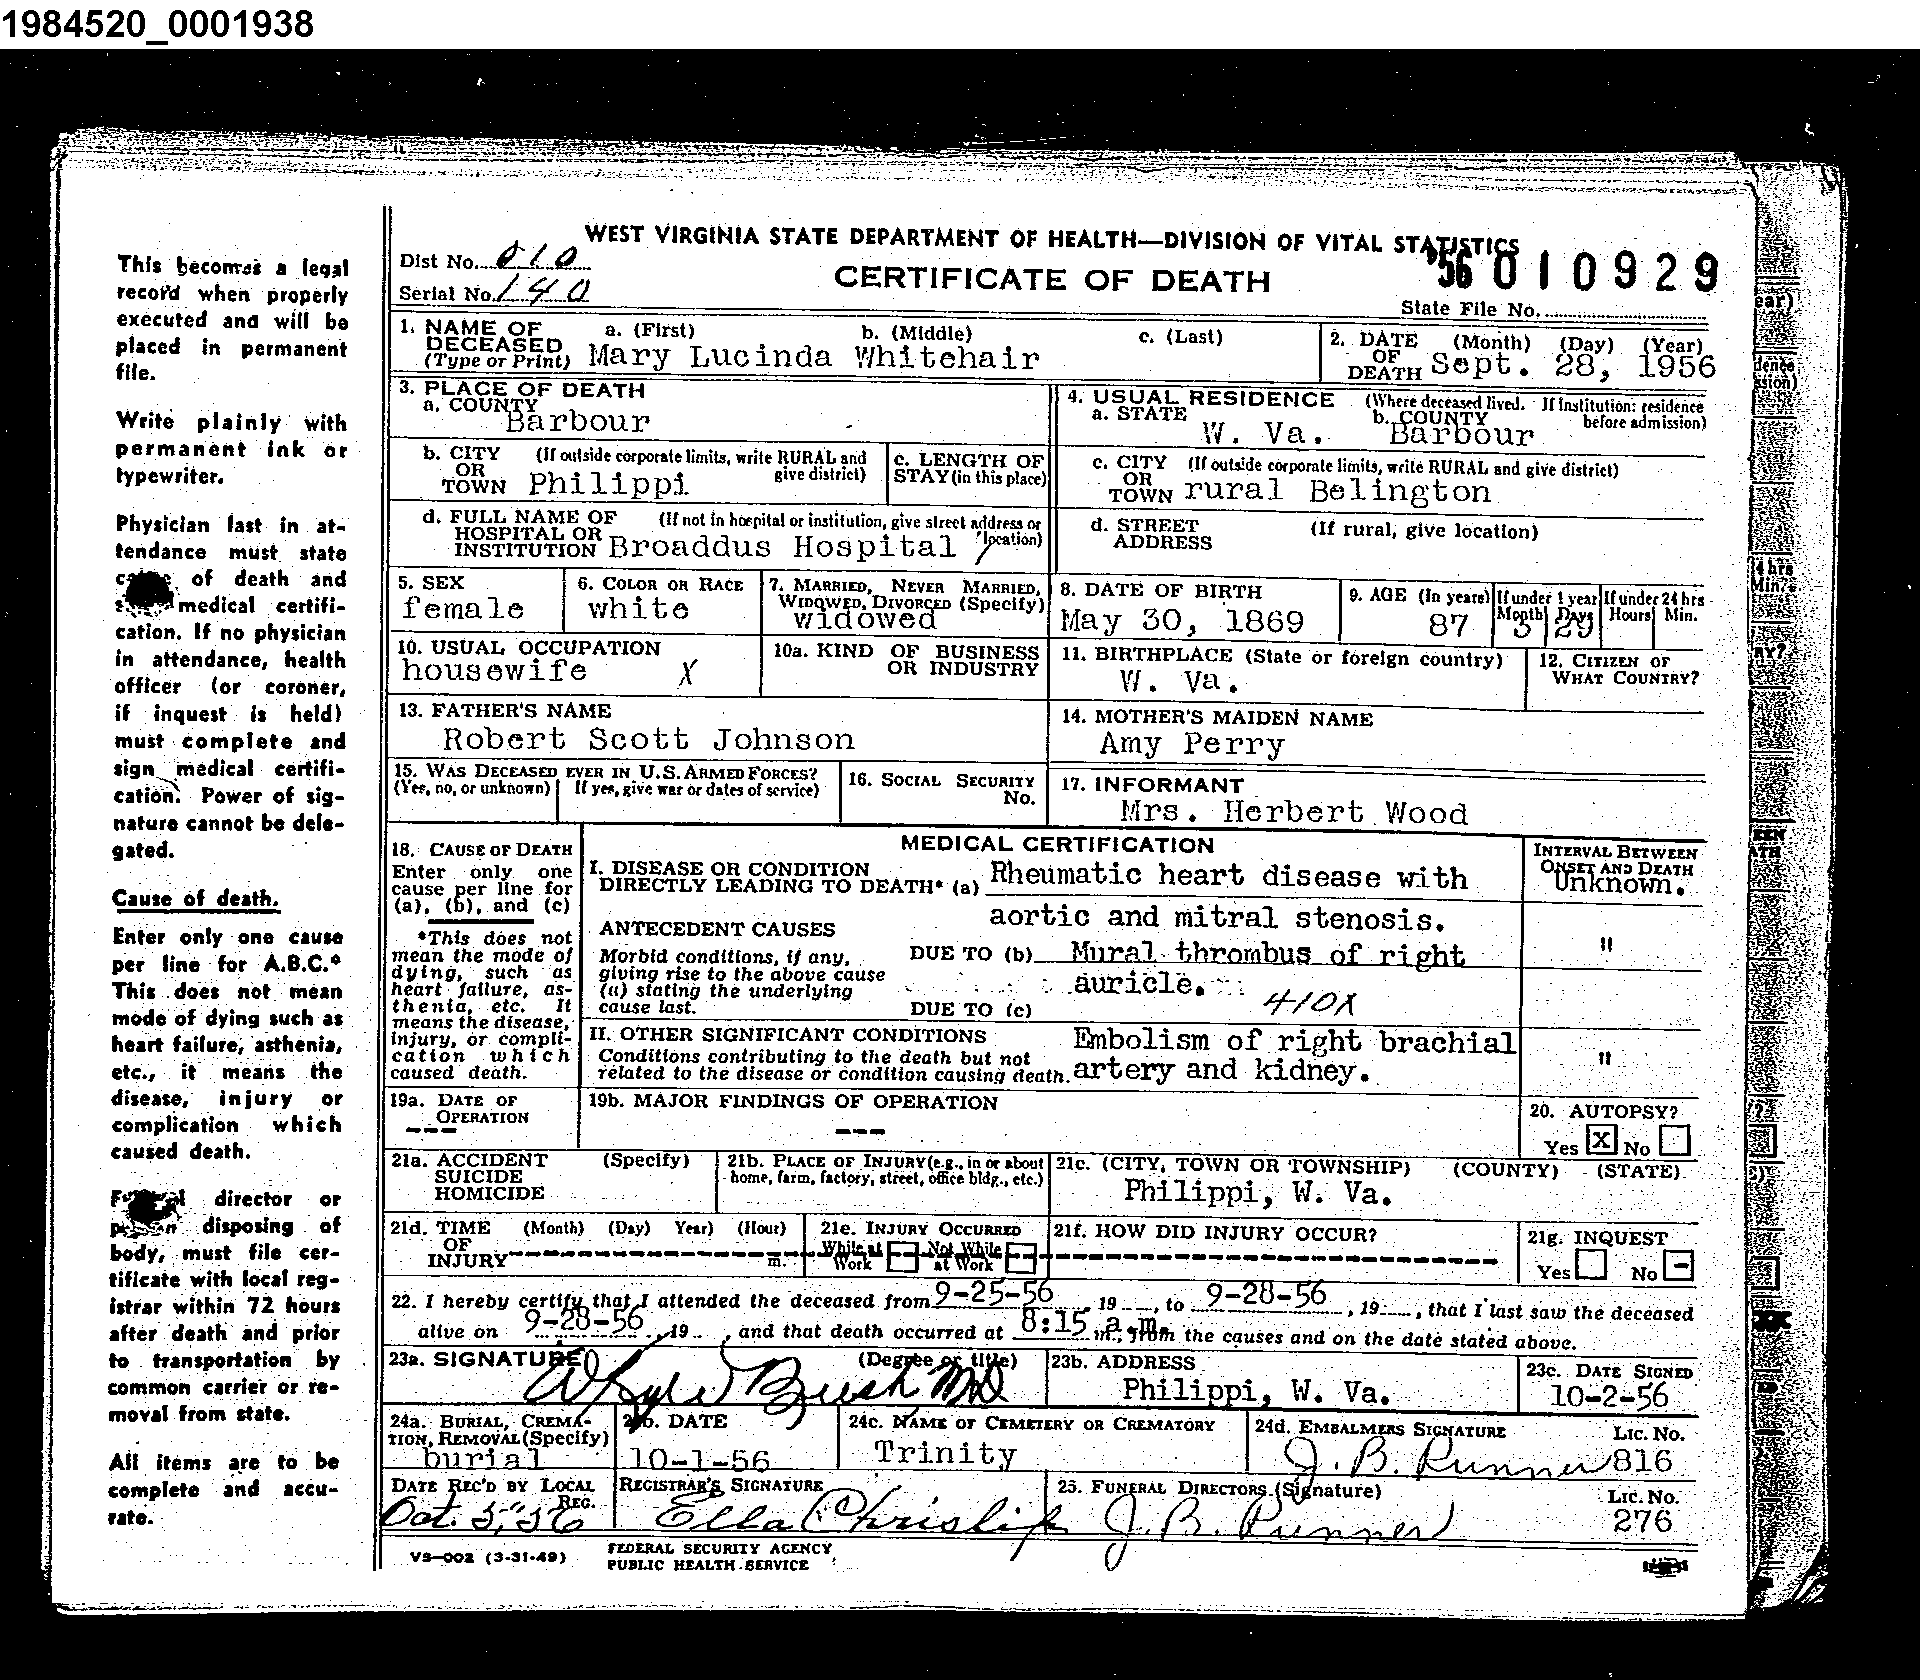 1984520_0001938
WEST VIRGINIA STATE DEPARTMENT OF HEALTH—DIVISION OF VITAL STATISTICS
Dist No. 010
CERTIFICATE OF DEATH
'56 010929
Serial No. 140
State File No.
1. NAME OF DECEASED (Type or Print) a. (First) b. (Middle) c. (Last)
Mary Lucinda Whitehair
2. DATE OF DEATH (Month) (Day) (Year)
Sept. 28, 1956
3. PLACE OF DEATH
a. COUNTY
Barbour
4. USUAL RESIDENCE (Where deceased lived. If institution: residence before admission)
a. STATE W. Va. b. COUNTY Barbour
b. CITY OR TOWN (If outside corporate limits, write RURAL and give district)
Philippi
c. LENGTH OF STAY (in this place)
c. CITY OR TOWN (If outside corporate limits, write RURAL and give district)
rural Belington
d. FULL NAME OF HOSPITAL OR INSTITUTION (If not in hospital or institution, give street address or location)
Broaddus Hospital
d. STREET ADDRESS (If rural, give location)
5. SEX
female
6. COLOR OR RACE
white
7. MARRIED, NEVER MARRIED, WIDOWED, DIVORCED (Specify)
widowed
8. DATE OF BIRTH
May 30, 1869
9. AGE (In years)
87
If under 1 year
Month Days
3 29
If under 24 hrs
Hours Min.
10. USUAL OCCUPATION
housewife X
10a. KIND OF BUSINESS OR INDUSTRY
11. BIRTHPLACE (State or foreign country)
W. Va.
12. CITIZEN OF WHAT COUNTRY?
13. FATHER'S NAME
Robert Scott Johnson
14. MOTHER'S MAIDEN NAME
Amy Perry
15. WAS DECEASED EVER IN U.S. ARMED FORCES?
(Yes, no, or unknown) If yes, give war or dates of service)
16. SOCIAL SECURITY No.
17. INFORMANT
Mrs. Herbert Wood
18. CAUSE OF DEATH
Enter only one cause per line for (a), (b), and (c)
*This does not mean the mode of dying, such as heart failure, asthenia, etc. It means the disease, injury, or complication which caused death.
MEDICAL CERTIFICATION
INTERVAL BETWEEN ONSET AND DEATH
I. DISEASE OR CONDITION DIRECTLY LEADING TO DEATH* (a) Rheumatic heart disease with
Unknown.
aortic and mitral stenosis.
ANTECEDENT CAUSES
Morbid conditions, if any, giving rise to the above cause (a) stating the underlying cause last.
DUE TO (b) Mural thrombus of right
"
auricle.
DUE TO (c) 410X
II. OTHER SIGNIFICANT CONDITIONS
Conditions contributing to the death but not related to the disease or condition causing death.
Embolism of right brachial
artery and kidney.
"
19a. DATE OF OPERATION
---
19b. MAJOR FINDINGS OF OPERATION
---
20. AUTOPSY?
Yes X No
21a. ACCIDENT SUICIDE HOMICIDE (Specify)
21b. PLACE OF INJURY (e.g., in or about home, farm, factory, street, office bldg., etc.)
21c. (CITY, TOWN OR TOWNSHIP) (COUNTY) (STATE)
Philippi, W. Va.
21d. TIME OF INJURY (Month) (Day) Year) (Hour) m.
21e. INJURY OCCURRED
While at Work Not While at Work
21f. HOW DID INJURY OCCUR?
21g. INQUEST
Yes No -
22. I hereby certify that I attended the deceased from 9-25-56, 19__, to 9-28-56, 19__, that I last saw the deceased
alive on 9-28-56, 19__, and that death occurred at 8:15 a.m. m., from the causes and on the date stated above.
23a. SIGNATURE (Degree or title)
Bush MD
23b. ADDRESS
Philippi, W. Va.
23c. DATE SIGNED
10-2-56
24a. BURIAL, CREMATION, REMOVAL (Specify)
burial
24b. DATE
10-1-56
24c. NAME OF CEMETERY OR CREMATORY
Trinity
24d. EMBALMERS SIGNATURE Lic. No.
J. B. Runner 816
DATE REC'D BY LOCAL REG.
Oct. 5, 56
REGISTRAR'S SIGNATURE
Ella Christlip
25. FUNERAL DIRECTORS (Signature) Lic. No.
J. B. Runner 276
VS-002 (3-31-49)
FEDERAL SECURITY AGENCY
PUBLIC HEALTH SERVICE
This becomes a legal
record when properly
executed and will be
placed in permanent
file.
Write plainly with
permanent ink or
typewriter.
Physician last in at-
tendance must state
cause of death and
medical certifi-
cation. If no physician
in attendance, health
officer (or coroner,
if inquest is held)
must complete and
sign medical certifi-
cation. Power of sig-
nature cannot be dele-
gated.
Cause of death.
Enter only one cause
per line for A.B.C.*
This does not mean
mode of dying such as
heart failure, asthenia,
etc., it means the
disease, injury or
complication which
caused death.
Funeral director or
person disposing of
body, must file cer-
tificate with local reg-
istrar within 72 hours
after death and prior
to transportation by
common carrier or re-
moval from state.
All items are to be
complete and accu-
rate.